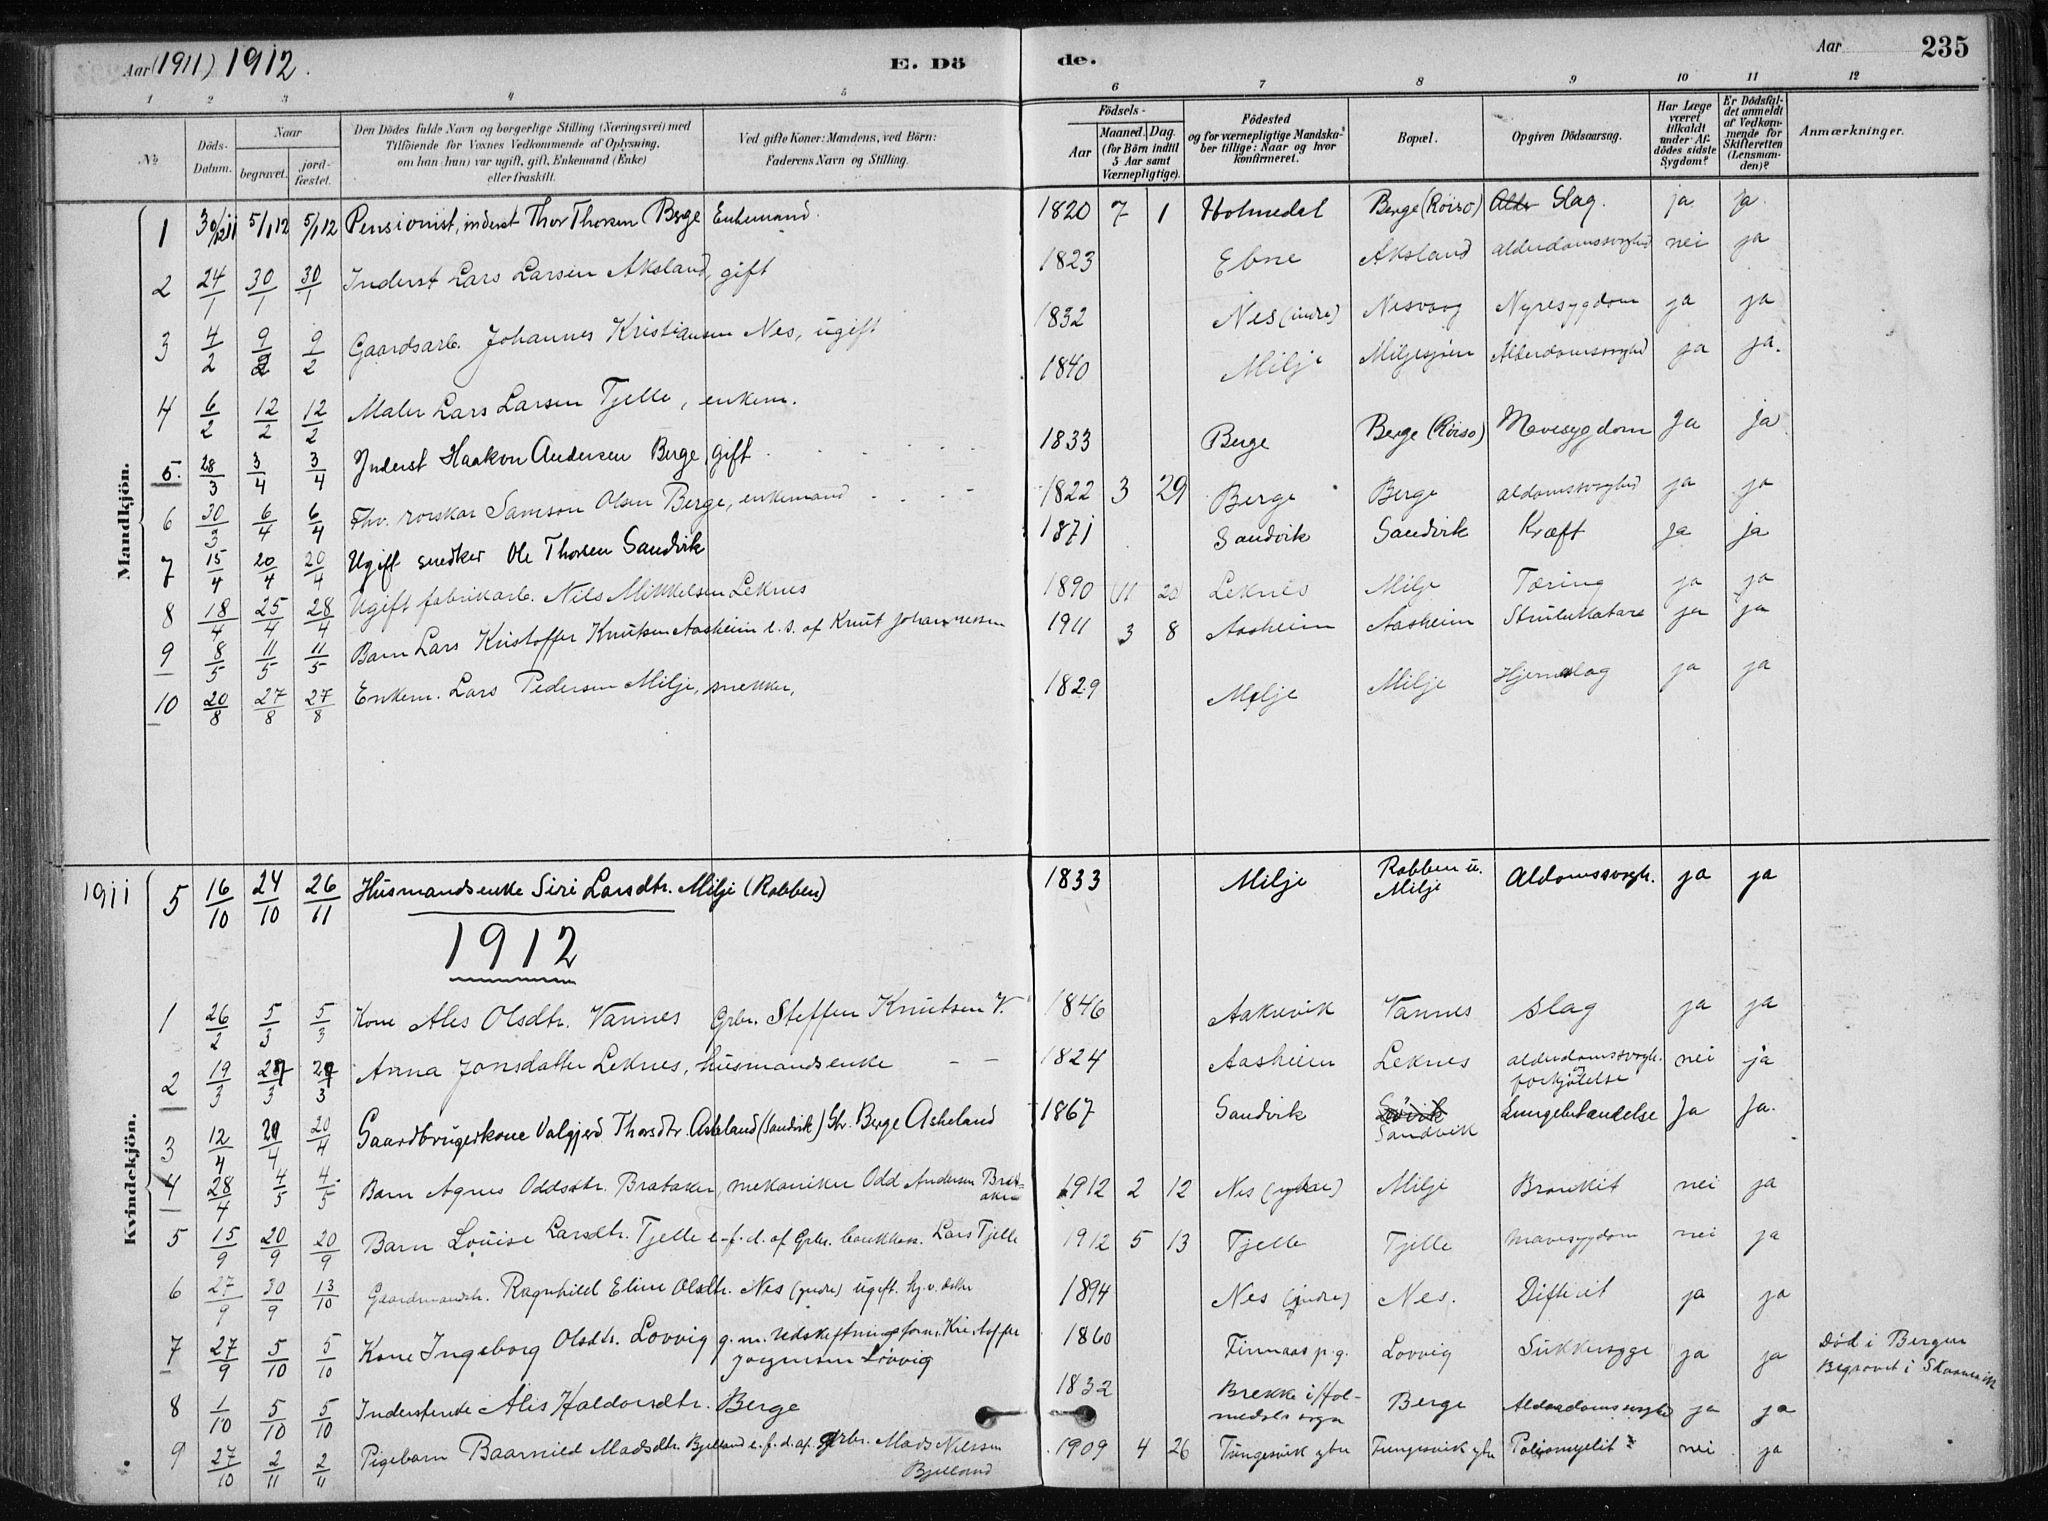 Aar (1911) 1912. E. Dö de. Aar 235
1 2 3 4 5 6 7 8 9 10 11 12
No Döds-Datum. Naar begravet. jord-fæstet. Den Dödes fulde Navn og borgerlige Stilling (Næringsvei) med Tilföiende for Voxnes Vedkommende af Oplysning, om han (hun) var ugift, gift, Enkemand (Enke) eller fraskilt. Ved gifte Koner: Mandens, ved Börn: Faderens Navn og Stilling. Födsels- Aar Maaned. Dag. (for Börn indtil 5 Aar samt Værnepligtige). Födested og for værnepligtige Mandskaber tillige: Naar og hvor konfirmeret. Bopæl. Opgiven Dödsaarsag. Har Læge været tilkaldt under Afdödes sidste Sygdom? Er Dödsfaldet anmeldt af Vedkommende for Skifteretten (Lensmanden)? Anmærkninger.
Mandkjön.
1 30/12 11 5/1 12 5/1 12 Pensionist, inderst Thor Thorsen Berge Enkemand. 1820 7 1 Holmedal Berge (Röisö) Alder Slag. ja ja.
2 24/1 30/1 30/1 Inderst Lars Larsen Aksland, gift 1823 Ebne Aksland alderdomssvaghed nei ja
3 4/2 9/2 9/2 Gaardsarb. Johannes Kristiansen Nes, ugift 1832 Nes (indre) Nesvaag Nyresygdom ja ja
4 6/2 12/2 12/2 Maler Lars Larsen Tjelle, enkem. 1840 Milje Miljesjøen Alderdomssvaghed ja ja.
5. 28/3 3/4 3/4 Inderst Haakon Andersen Berge, gift 1833 Berge Berge (Röisö) Mavesygdom Ja ja
6 30/3 6/4 6/4 Fhv. rorskar Samson Olsen Berge, enkemand 1822 3 29 Berge Berge aldomssvaghed ja ja
7 15/4 20/4 20/4 Ugift snedker Ole Thorsen Sandvik 1871 Sandvik Sandvik Kræft Ja ja
8 18/4 25/4 28/4 Ugift fabrikarb. Nils Mikkelsen Leknes 1890 11 20 Leknes Milje Tæring ja ja
9 8/5 11/5 11/5 Barn Lars Kristoffer Knutsen Aasheim e. s. af Knut Johannessen 1911 3 8 Aasheim Aasheim Strubekatarr ja ja
10 20/8 27/8 27/8 Enkem. Lars Pedersen Milje, snekker, 1829 Milje Milje Hjerneslag ja ja
Kvindekjön.
1911 5 16/10 24/10 26/11 Husmandsenke Siri Larsdtr. Milje (Robben) 1833 Milje Robben u. Milje Aldomssvagh. ja ja
1912
1 26/2 5/3 5/3 Kone Ales Olsdtr. Vannes Grbr. Steffen Knutsen V. 1846 Aakrevik Vannes Slag ja ja
2 19/3 Anna Jonsdatter Leknes, husmandsenke 1824 Aasheim Leknes alderdomssvagh. forkjølelse nei ja
3 12/4 20/4 20/4 Gaardbrugerkone Valgjerd Thorsdtr. Askeland (Sandvik) Gbr. Berge Askeland 1867 Sandvik Sandvik Lungebetændelse Ja Ja.
4 28/4 4/5 4/5 Barn Agnes Oddsdtr. Brataker, mekaniker Odd Andersen Brataker 1912 2 12 Nes (ytre) Milje Bronkit nei ja
5 15/9 20/9 20/9 Barn Louise Larsdtr. Tjelle e. f. d. af Grbr. Lars Tjelle 1912 5 13 Tjelle Tjelle mavesygdom nei ja
6 27/9 30/9 13/10 Gaardmandsdtr. Ragnhild Eline Olsdtr. Nes (yndre) ugift. 1894 Nes (yndre) Nes. Difterit ja ja
7 27/9 5/10 5/10 Kone Ingeborg Olsdtr. Lovvig g. m. Udskiftningsform. Kristoffer Jørgensen Løvvig 1860 Finnaas p. g. Lovvig Sukkersyge ja ja Død i Bergen Begravet i Skaanevik
8 1/10 5/10 5/10 Inderstenke Ales Haldorsdtr. Berge 1832 Brekke i Holmedals sogn Berge Alderdomssvaghed ja ja
9 27/10 2/11 2/11 Pigebarn Baarnild Madsdtr. Bjelland e. f. d. af grbr. Mads Nilssen Bjelland 1909 4 26 Tungesvik ytre Tungesvik ytre Poliomyelit nei ja